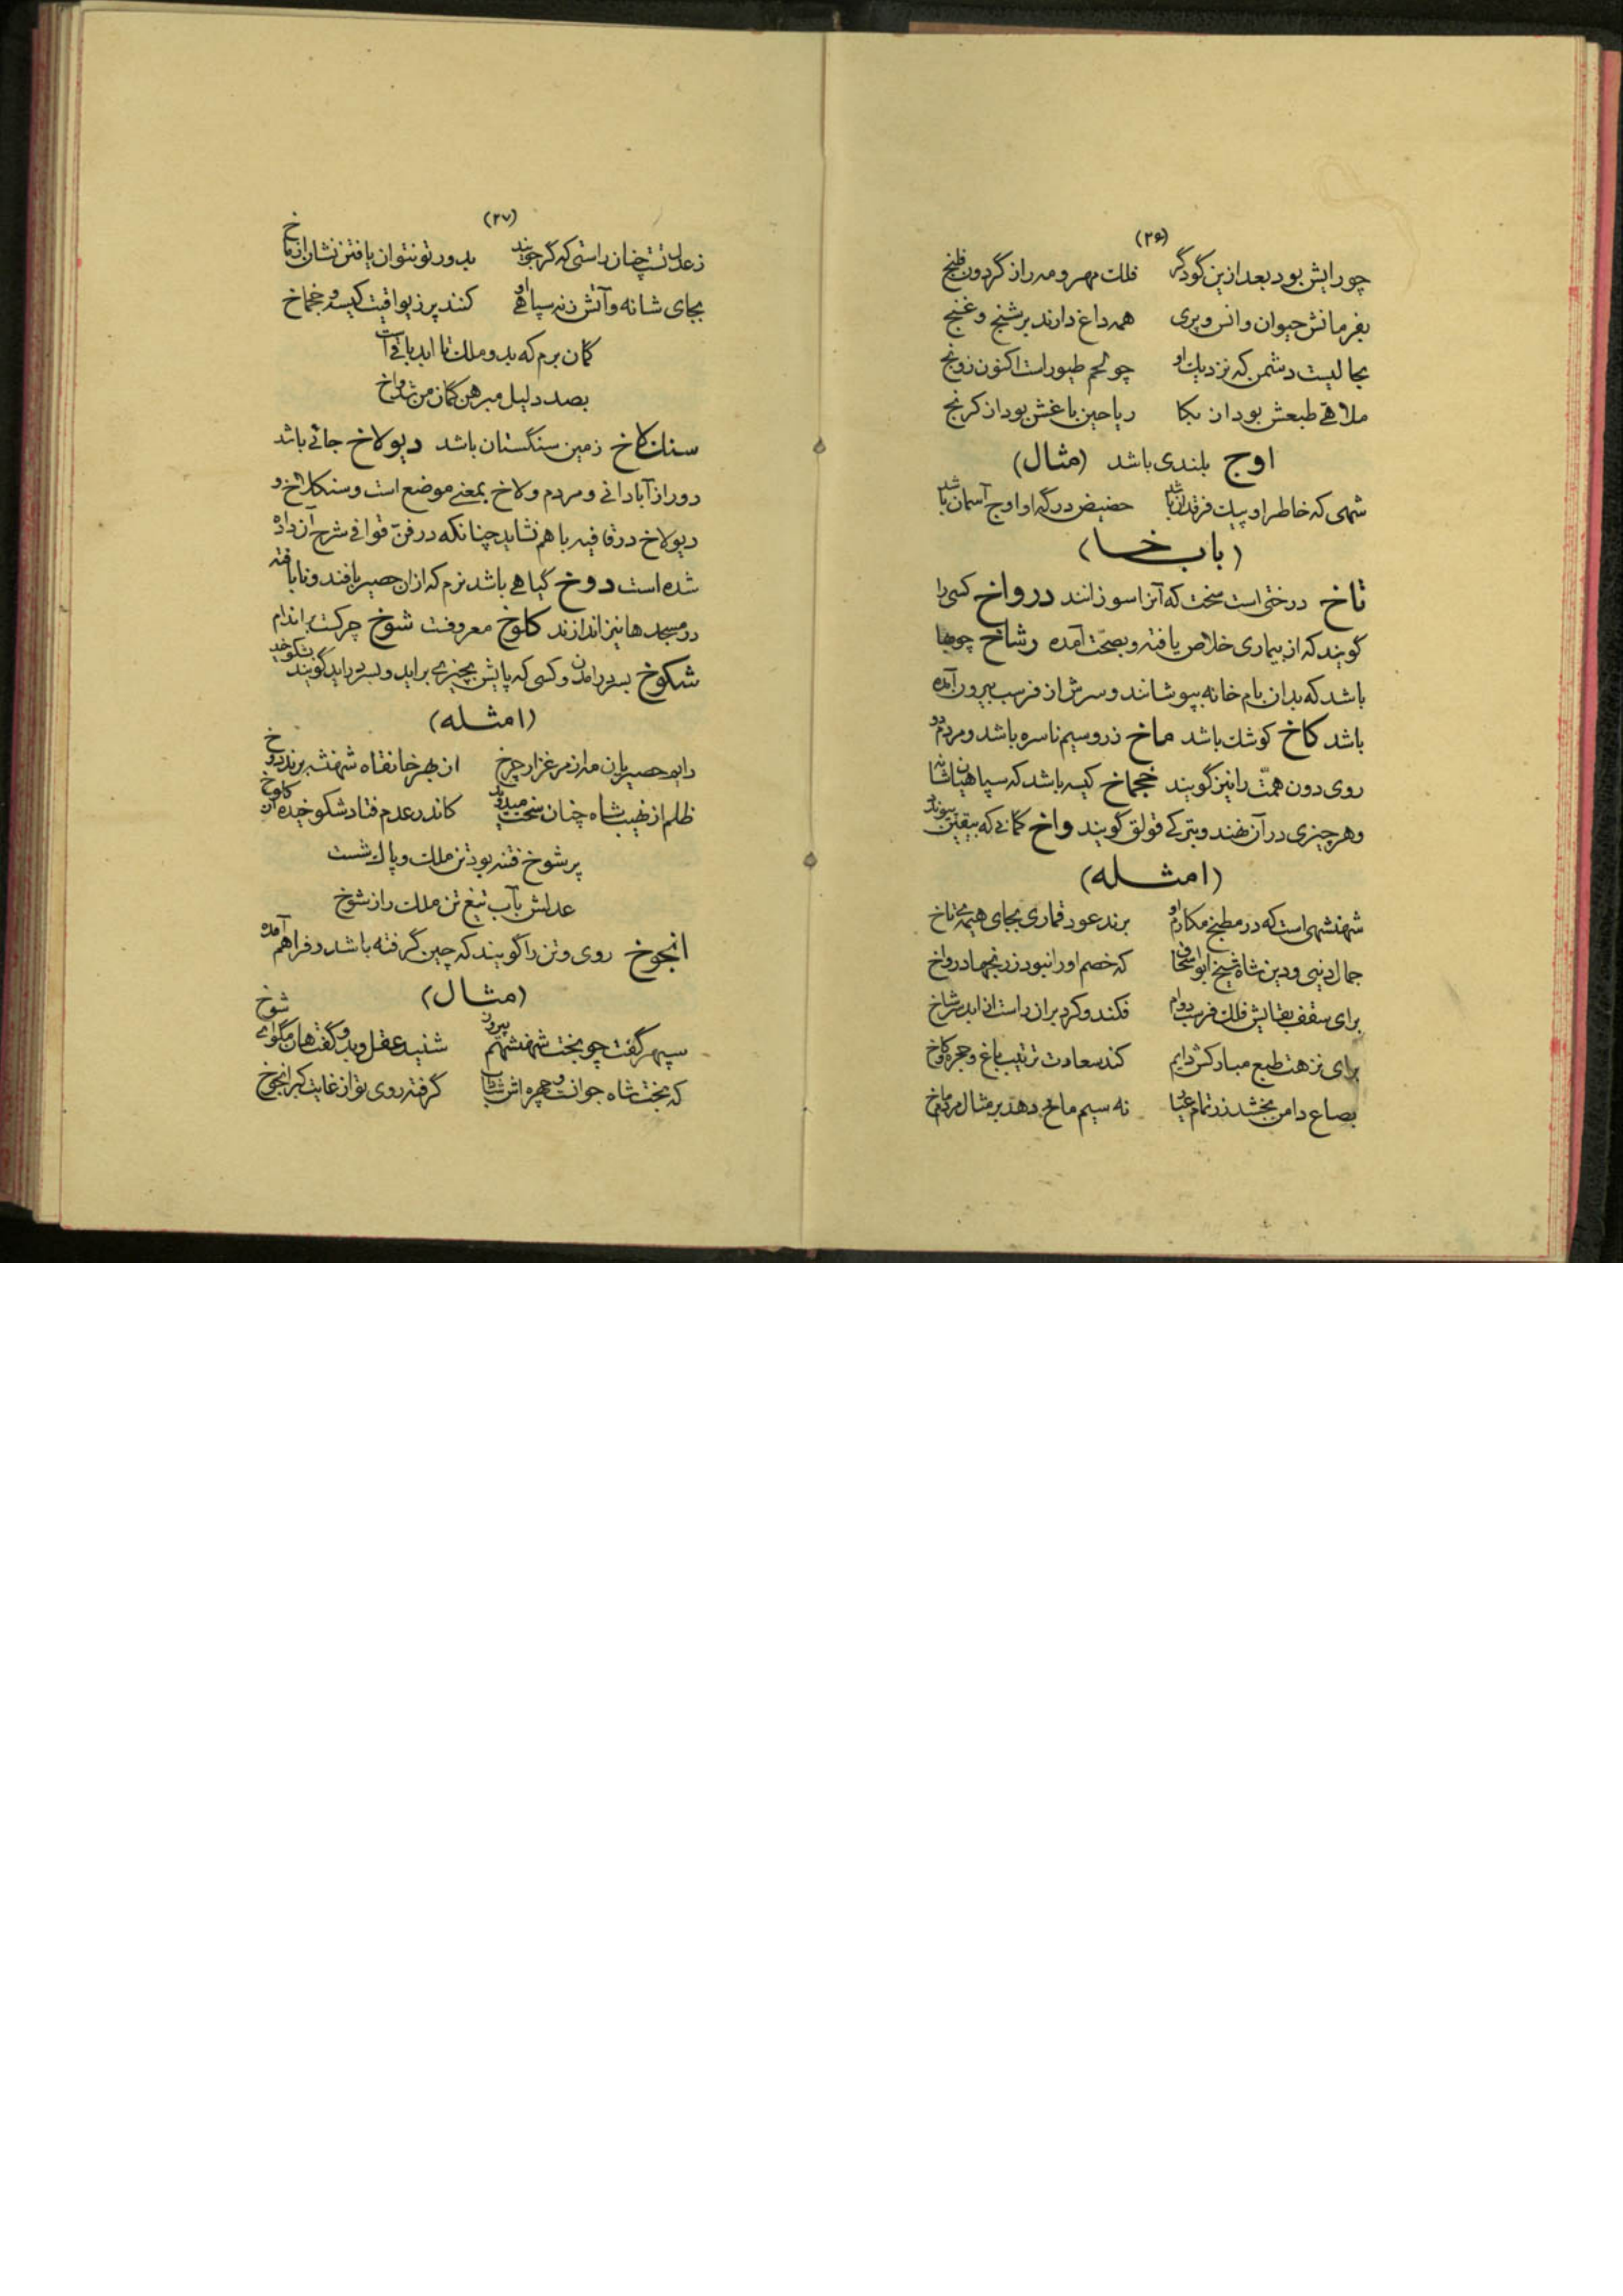 (۲۶)
چو رایش بود بعد ازین گو دگر فلک مهر و مه را ز گردون
بفرمانش حیوان و انس و پری همه داغ دارند بر شنج و غنج
دشمن که نزدیک او چو لحم طیور است اکنون
ملاهی طبعش بود ریاحین باغش بود از کرنج
اوج بلندی باشد (مثال)
شهی که خاطر او پیک فرقدان باشد حضیض درگه او اوج آسمان باشد
(باب خا)
تاخ درختی است سخت که آنرا سوزانند درواخ کسی را
گویند که از بیماری خلاص یافته و بصحّت آمده رشاخ چوبها
باشد که بدان بام خانه بپوشانند و سرش از فرسب بیرون آمده
باشد کاخ کوشک باشد ماخ زر و سیم ناسره باشد و مردم دو
روی دون همّت را نیز گویند خجماخ کیسه باشد که سپاهیان شانه
و هر چیزی در آن نهند و بترکی قولق گویند واخ گمانی که بیقین پیوندد
(امثله)
شهنشهی است که در مطبخ مکارم او برند عود قماری بجای هیمهٔ تاخ
جمال دنیی و دین شاه شیخ ابو اسحاق که خصم او را نبود ز رنجها درواخ
برای سقف بقایش فلک فرسب دوام فکند و کرد بران راست از ابد رشاخ
برای نزهت طبع مبارکش دایم کند سعادت ترتیب باغ و حجره و کاخ
بصاع دامن بخشد زر تمام عیار نه سیم ماخ دهد بر مثال مردم ماخ
(۲۷)
ز عدل تست چنان راستی که گر جویند بدور تو نتوان یافتن نشان از ماخ
بجای شانه و آتش زنه سپاهی او کنند پر ز یواقیت کیسه و خجماخ
گمان برم که بدو ملک تا ابد باقی است
بصد دلیل مبرهن گمان من شد واخ
سنگلاخ زمین سنگستان باشد دیولاخ جائی باشد
دور از آبادانی و مردم ولاخ بمعنی موضع است و سنگلاخ و
دیولاخ در قافیه با هم نشاید چنانکه در فنّ قوافی شرح آن داده
شده است دوخ گیاهی باشد نرم که ازان حصیر بافند و نابافته
در مسجدها نیز اندازند کلوخ معروفست شوخ چرکست بر اندام
شکوخ بسر درامدن و کسی که پایش بچیزی براید و بسر دراید گویند بشکوخید
(امثله)
حصیریان مه از مرغزار چرخ از بهر خانقاه شهنشه برند دوخ
ظلم از نهیب شاه چنان سخت میدوید کاندر عدم فتاد شکوخیده از کلوخ
پر شوخ فتنه بود تن ملک و پاک شست
عدلش بآب تیغ تن ملک را ز شوخ
انجوخ روی و تن را گویند که چین گرفته باشد و فراهم آمده
(مثال)
سپهر گفت چو بخت شهنشهم پیروز شنید عقل و بدو گفت هان مگو ای شوخ
که بخت شاه جوانست و چهره اش شاداب گرفته روی تو از غایت کبر انجوخ